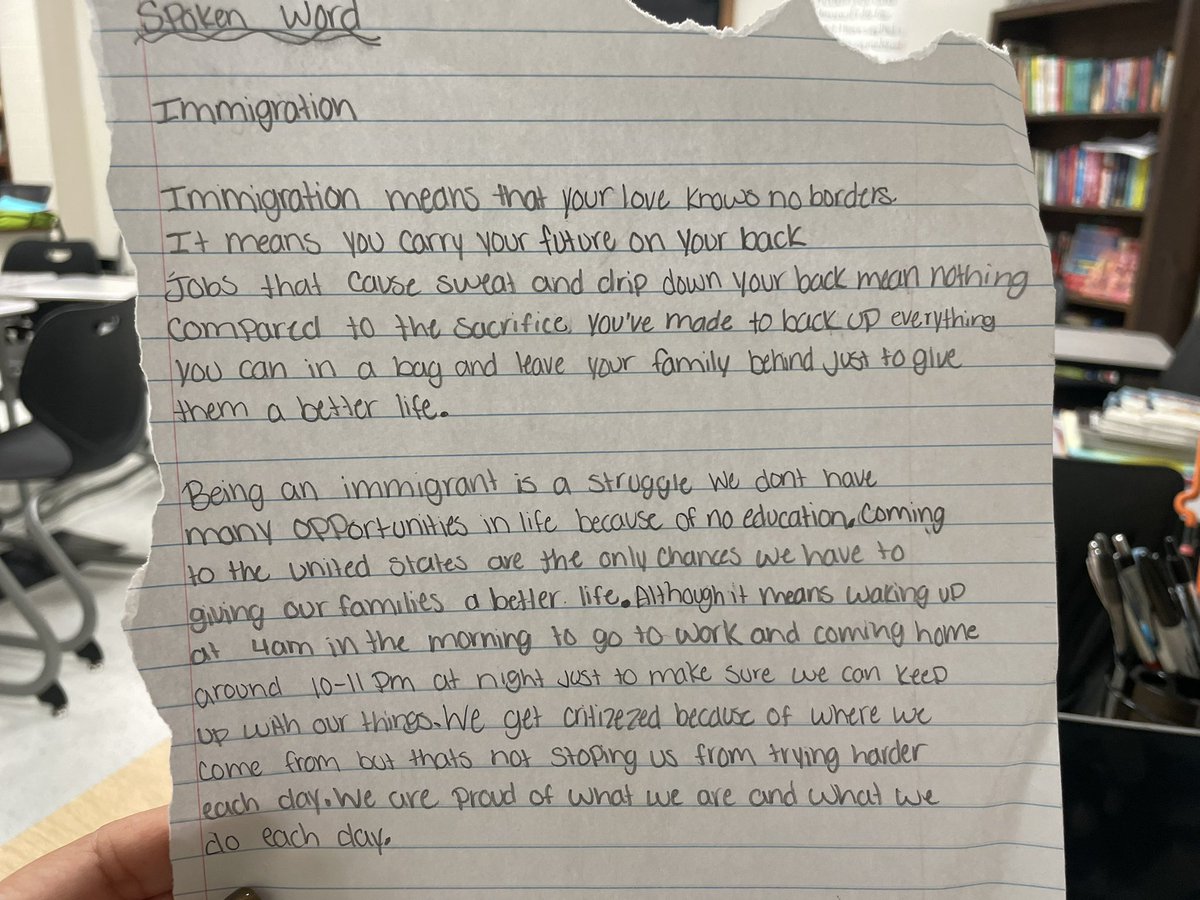 Spoken Word
Immigration
Immigration means that your love knows no borders.
It means you carry your future on your back
Jobs that cause sweat and drip down your back mean nothing
compared to the sacrifice you've made to back up everything
you can in a bag and leave your family behind just to give
them a better life.
Being an immigrant is a struggle we dont have
many opportunities in life because of no education. Coming
to the united states are the only chances we have to
giving our families a better life. Although it means waking up
at 4am in the morning to go to work and coming home
around 10-11 pm at night just to make sure we can keep
up with our things. We get critizezed because of where we
come from but thats not stoping us from trying harder
each day. We are proud of what we are and what we
do each day.